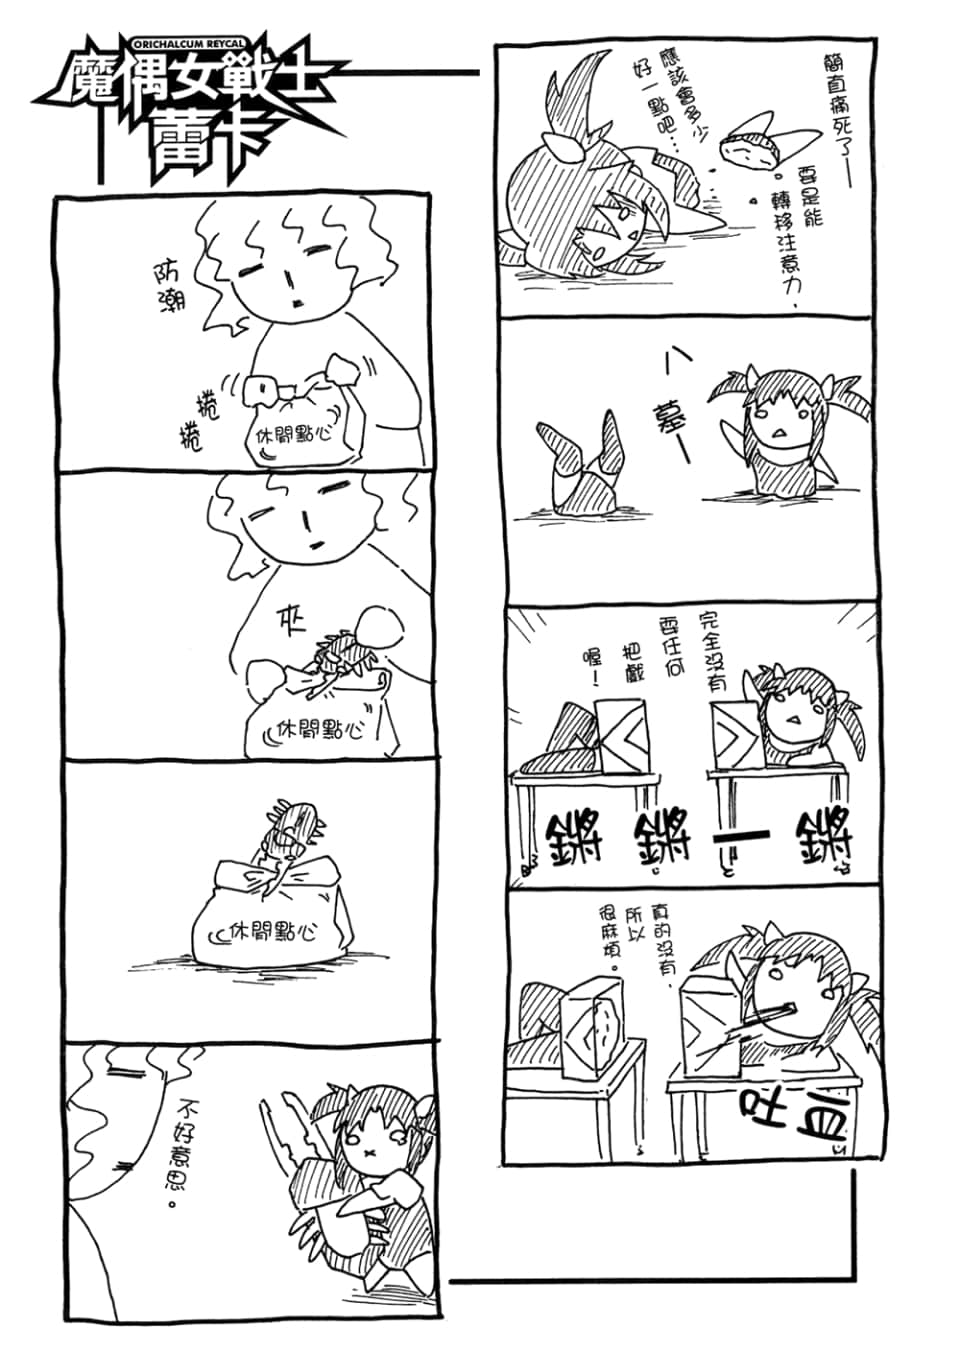 ORICHALCUM REYCAL
魔偶女戰士
蕾卡
簡直痛死了—
要是能
轉移注意力,
應該會多少
好一點吧…
八
墓—
完全沒有
耍任何
把戲
喔!
鏘
鏘
—
鏘
真的沒有,
所以
很麻煩。
防潮
捲
捲
休閒點心
夾
休閒點心
休閒點心
不好意思。